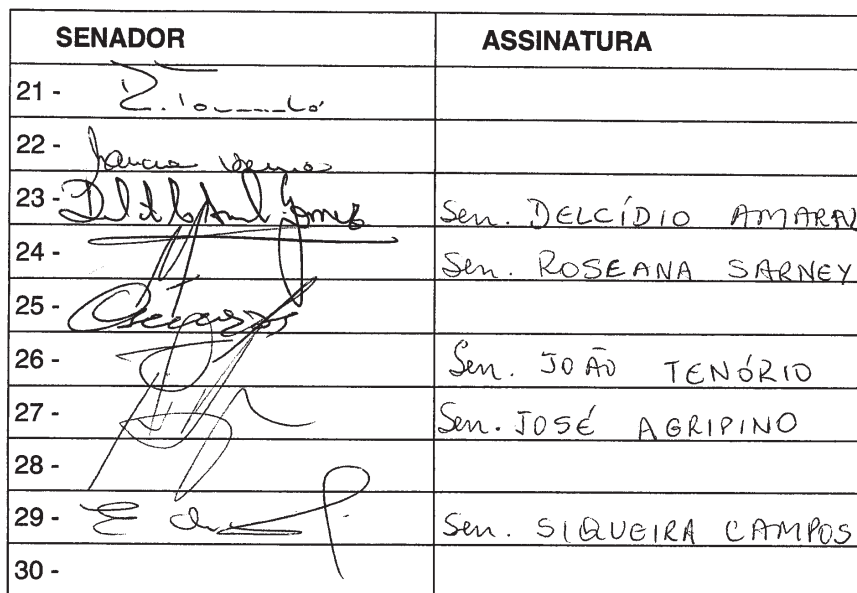 SENADOR ASSINATURA
21 -
22 -
23 - Sen. DELCÍDIO AMARAL
24 - Sen. ROSEANA SARNEY
25 -
26 - Sen. JOÃO TENÓRIO
27 - Sen. JOSÉ AGRIPINO
28 -
29 - Sen. SIQUEIRA CAMPOS
30 -